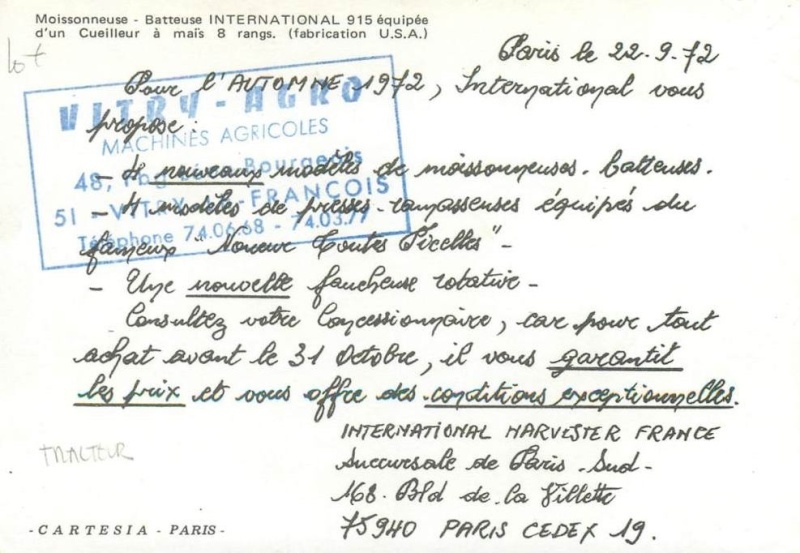 Moissonneuse - Batteuse INTERNATIONAL 915 équipée
d'un Cueilleur à maïs 8 rangs. (fabrication U.S.A.)
lot
Paris le 22.9.72
Pour l'AUTOMNE 1972, International vous
propose :
- 4 nouveaux modèles de moissonneuses-batteuses.
- 4 modèles de presses-ramasseuses équipés du
fameux "Noueur Toutes Ficelles" -
- Une nouvelle faucheuse rotative -
Consultez votre Concessionnaire, car pour tout
achat avant le 31 Octobre, il vous garantit
les prix et vous offre des conditions exceptionnelles.
INTERNATIONAL HARVESTER FRANCE
Succursale de Paris-Sud-
168. Bld de la Villette
75940 PARIS CEDEX 19.
VITRY-AGRO
MACHINES AGRICOLES
48, Bourgeois
51 - VITRY-FRANÇOIS
Téléphone 74.06.68 - 74.03.77
TRACTEUR
-CARTESIA - PARIS-